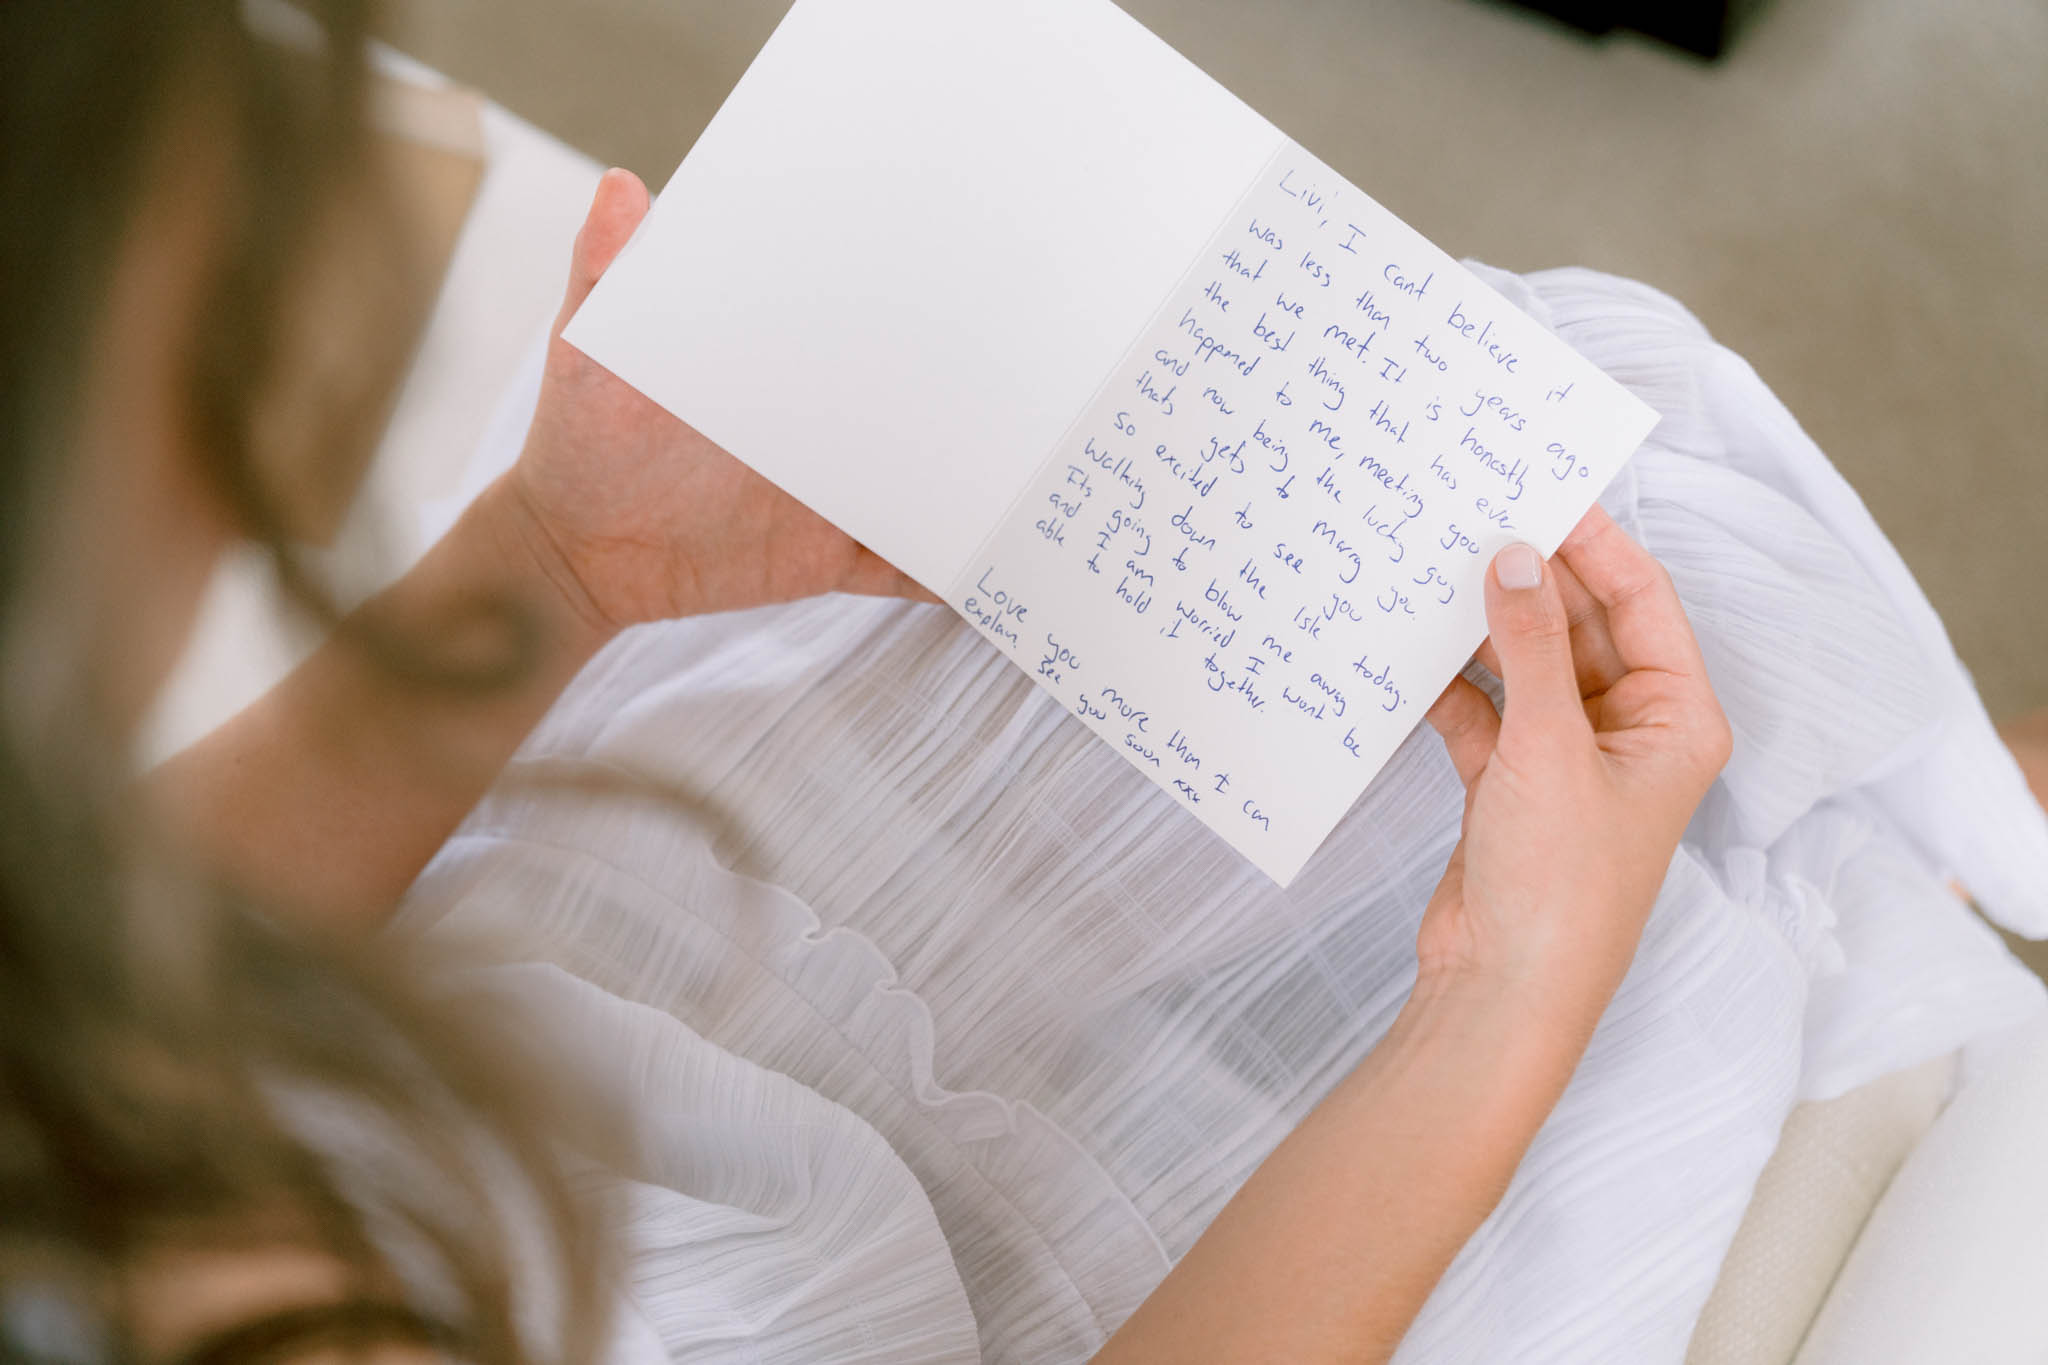 Livi, I cant believe it
was less than two years ago
that we met. It is honestly
the best thing that has ever
happened to me, meeting you
and now being the lucky guy
thats gets to marry you.
So excited to see you
walking down the Isle today.
Its going to blow me away
and I am worried I wont be
able to hold it together.
Love you more than I can
explain. See you soon xxx